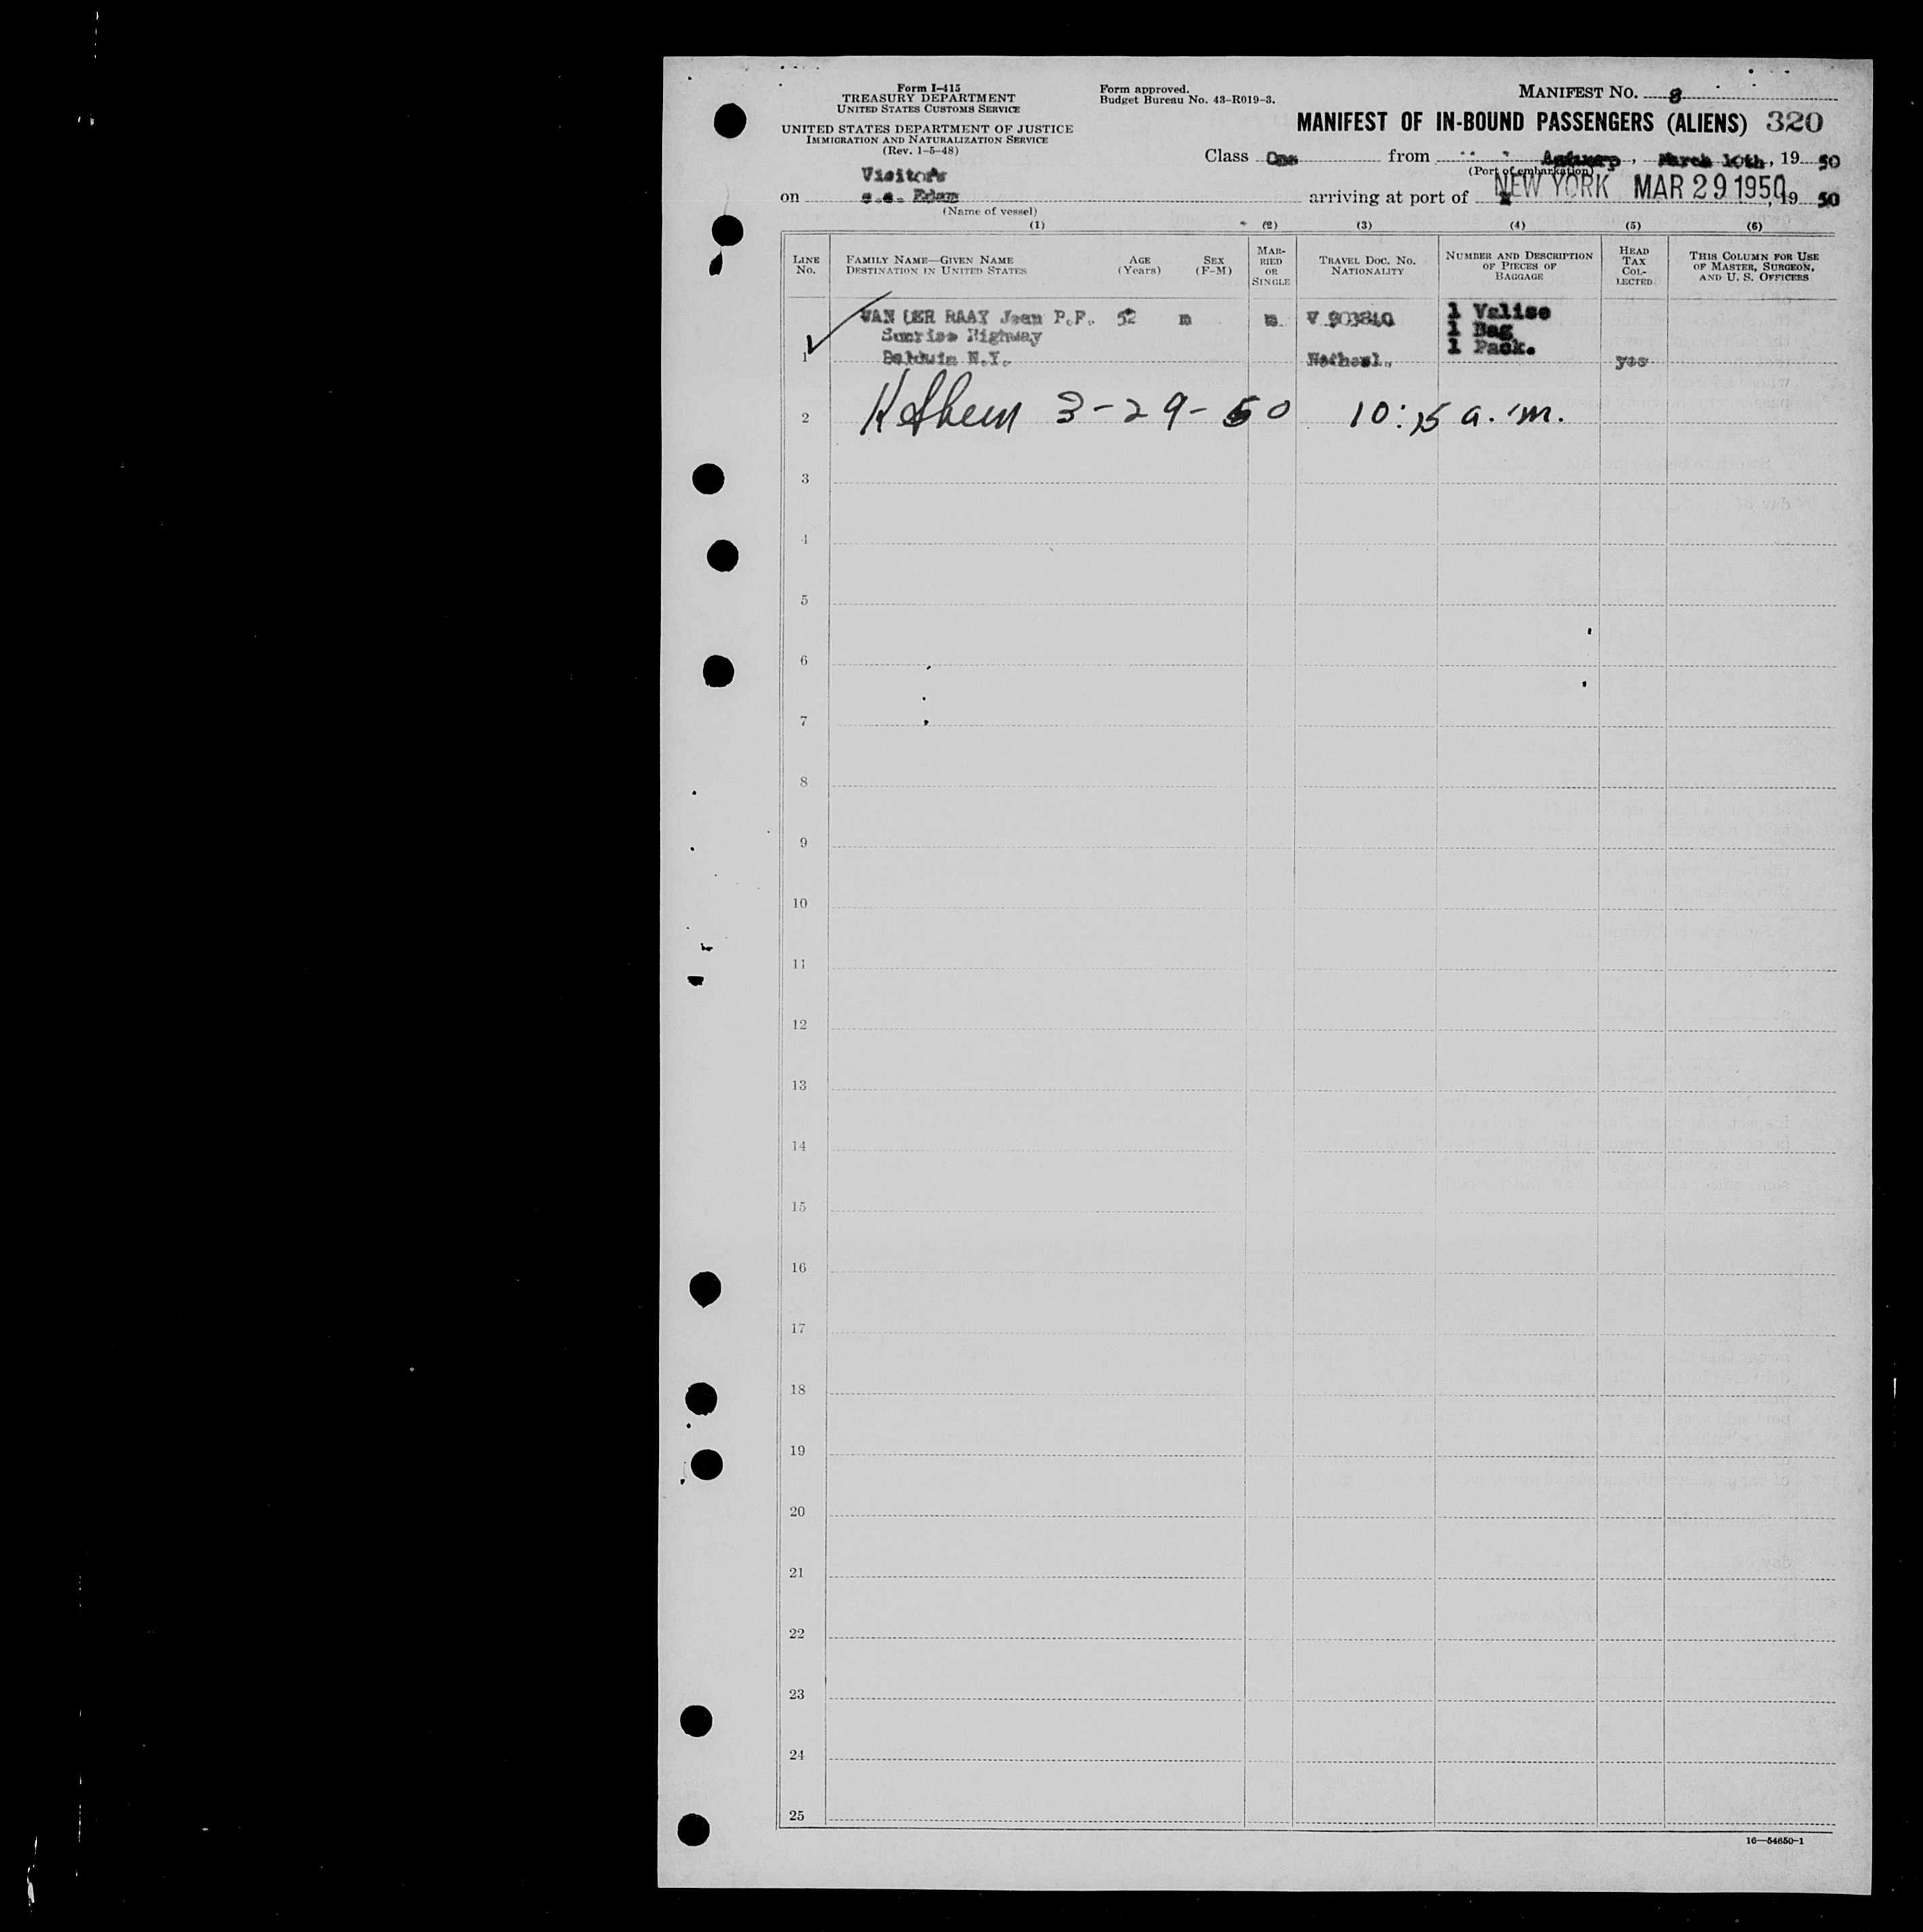 Form I-415
TREASURY DEPARTMENT
UNITED STATES CUSTOMS SERVICE
UNITED STATES DEPARTMENT OF JUSTICE
IMMIGRATION AND NATURALIZATION SERVICE
(Rev. 1-5-48)
Form approved.
Budget Bureau No. 43-R019-3.
MANIFEST NO. 8
MANIFEST OF IN-BOUND PASSENGERS (ALIENS) 320
Class One from Antwerp, March 10th, 19 50
(Port of embarkation)
Visitors
on s.s. Edam arriving at port of NEW YORK MAR 29 1950, 19 50
(Name of vessel)
(1) (2) (3) (4) (5) (6)
LINE NO.
FAMILY NAME—GIVEN NAME
DESTINATION IN UNITED STATES
AGE (Years)
SEX (F-M)
MARRIED OR SINGLE
TRAVEL DOC. NO. NATIONALITY
NUMBER AND DESCRIPTION OF PIECES OF BAGGAGE
HEAD TAX COLLECTED
THIS COLUMN FOR USE OF MASTER, SURGEON, AND U. S. OFFICERS
VAN DER RAAY Jean P.F. 52 m m V 903840 1 Valise
Sunrise Highway 1 Bag
1 Baldwin N.Y. Netherl. 1 Pack. yes
2 3-29-50 10:15 a.m.
3
4
5
6
7
8
9
10
11
12
13
14
15
16
17
18
19
20
21
22
23
24
25
16—54650-1